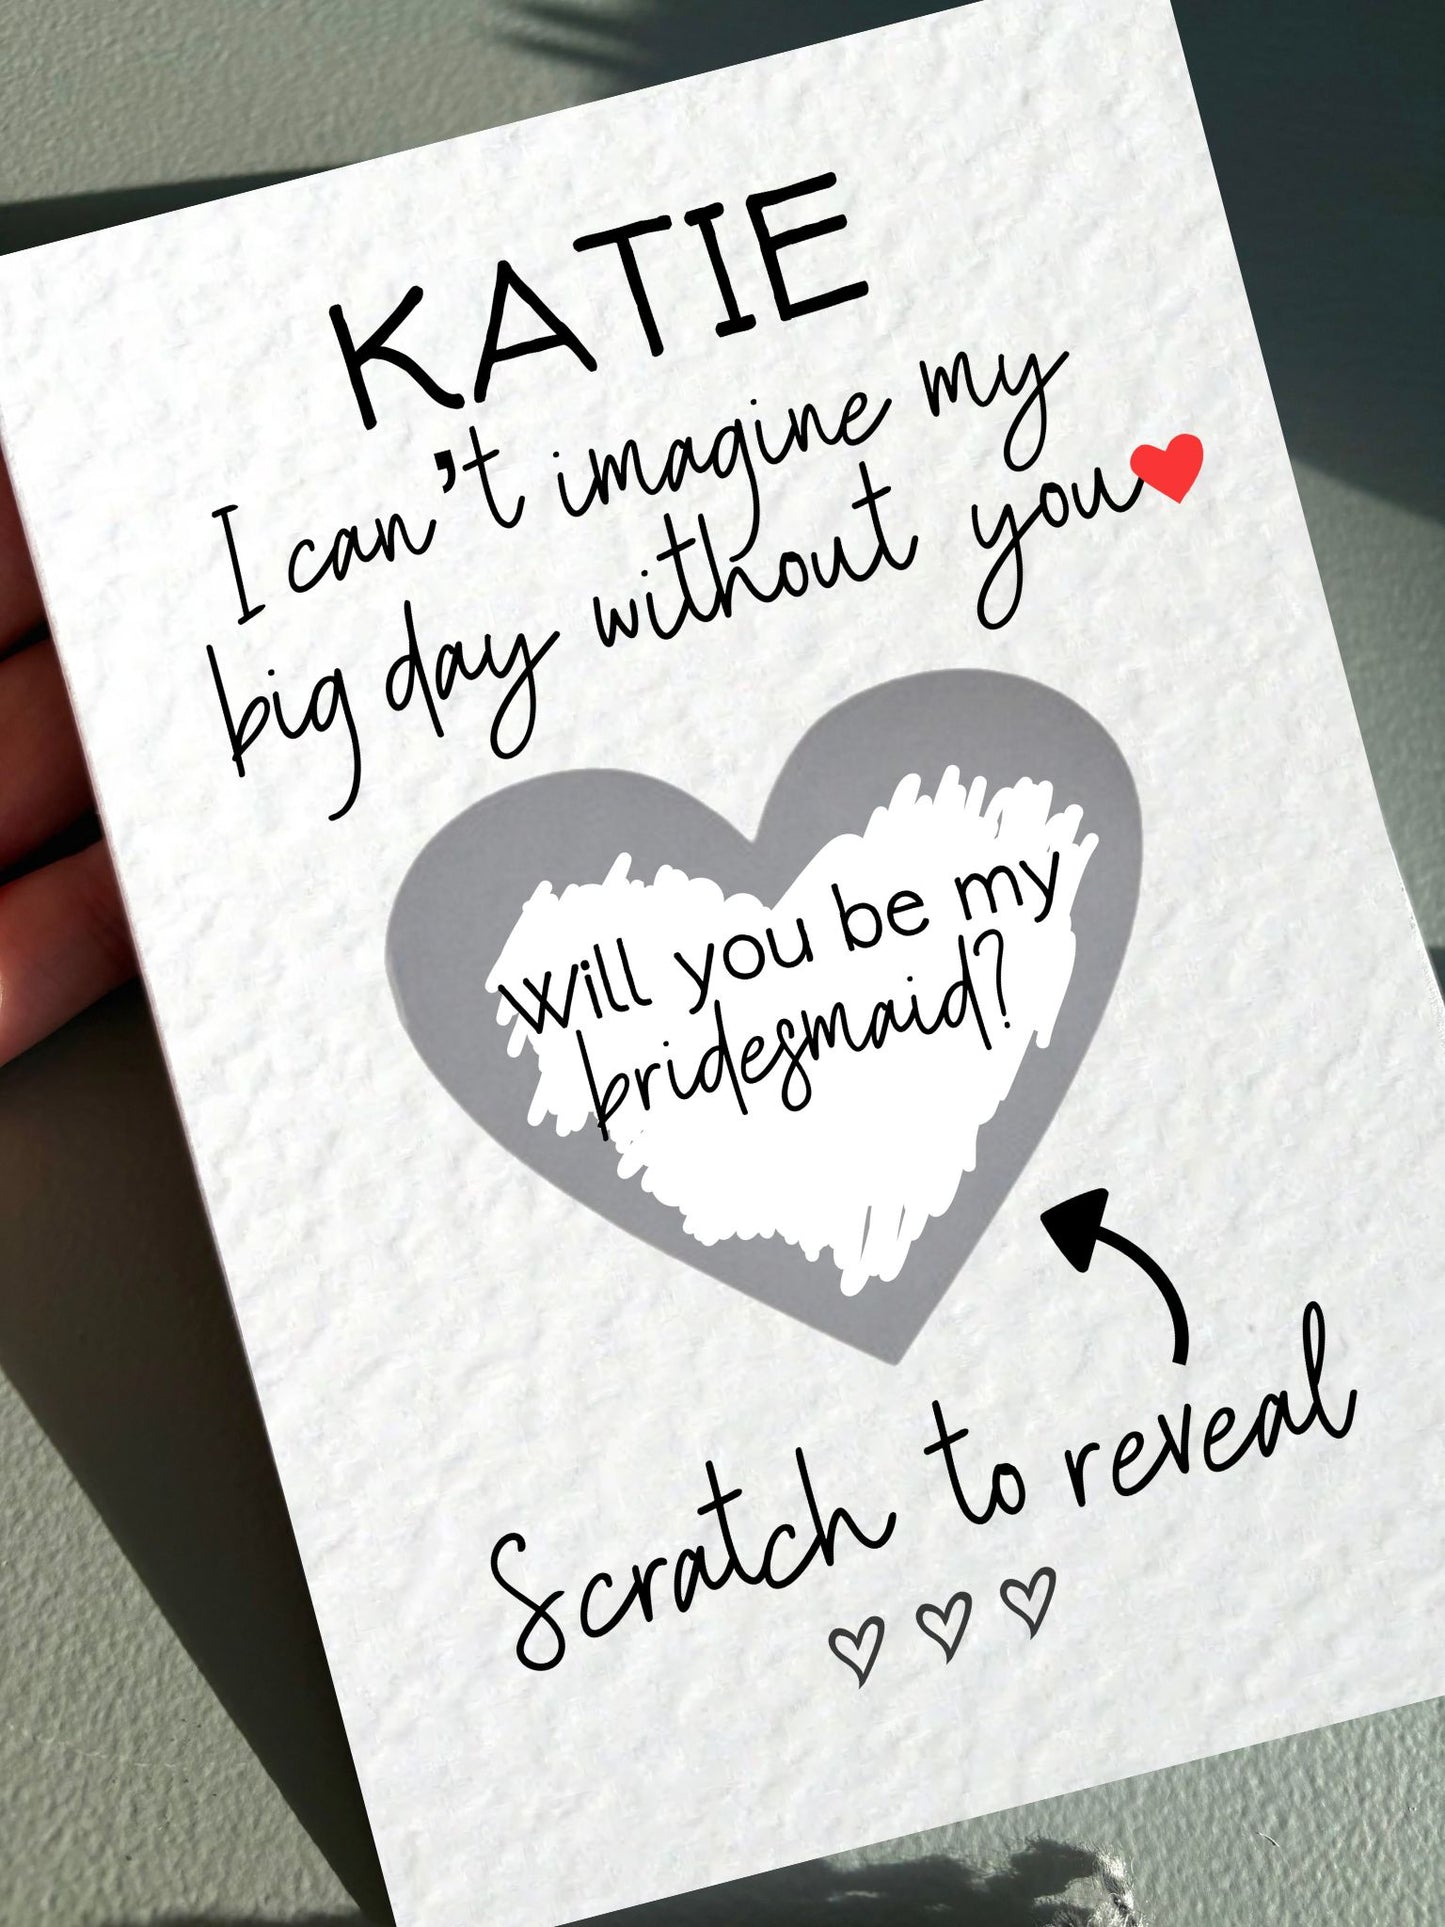 KATIE
I can't imagine my
big day without you
will you be my
bridesmaid?
Scratch to reveal